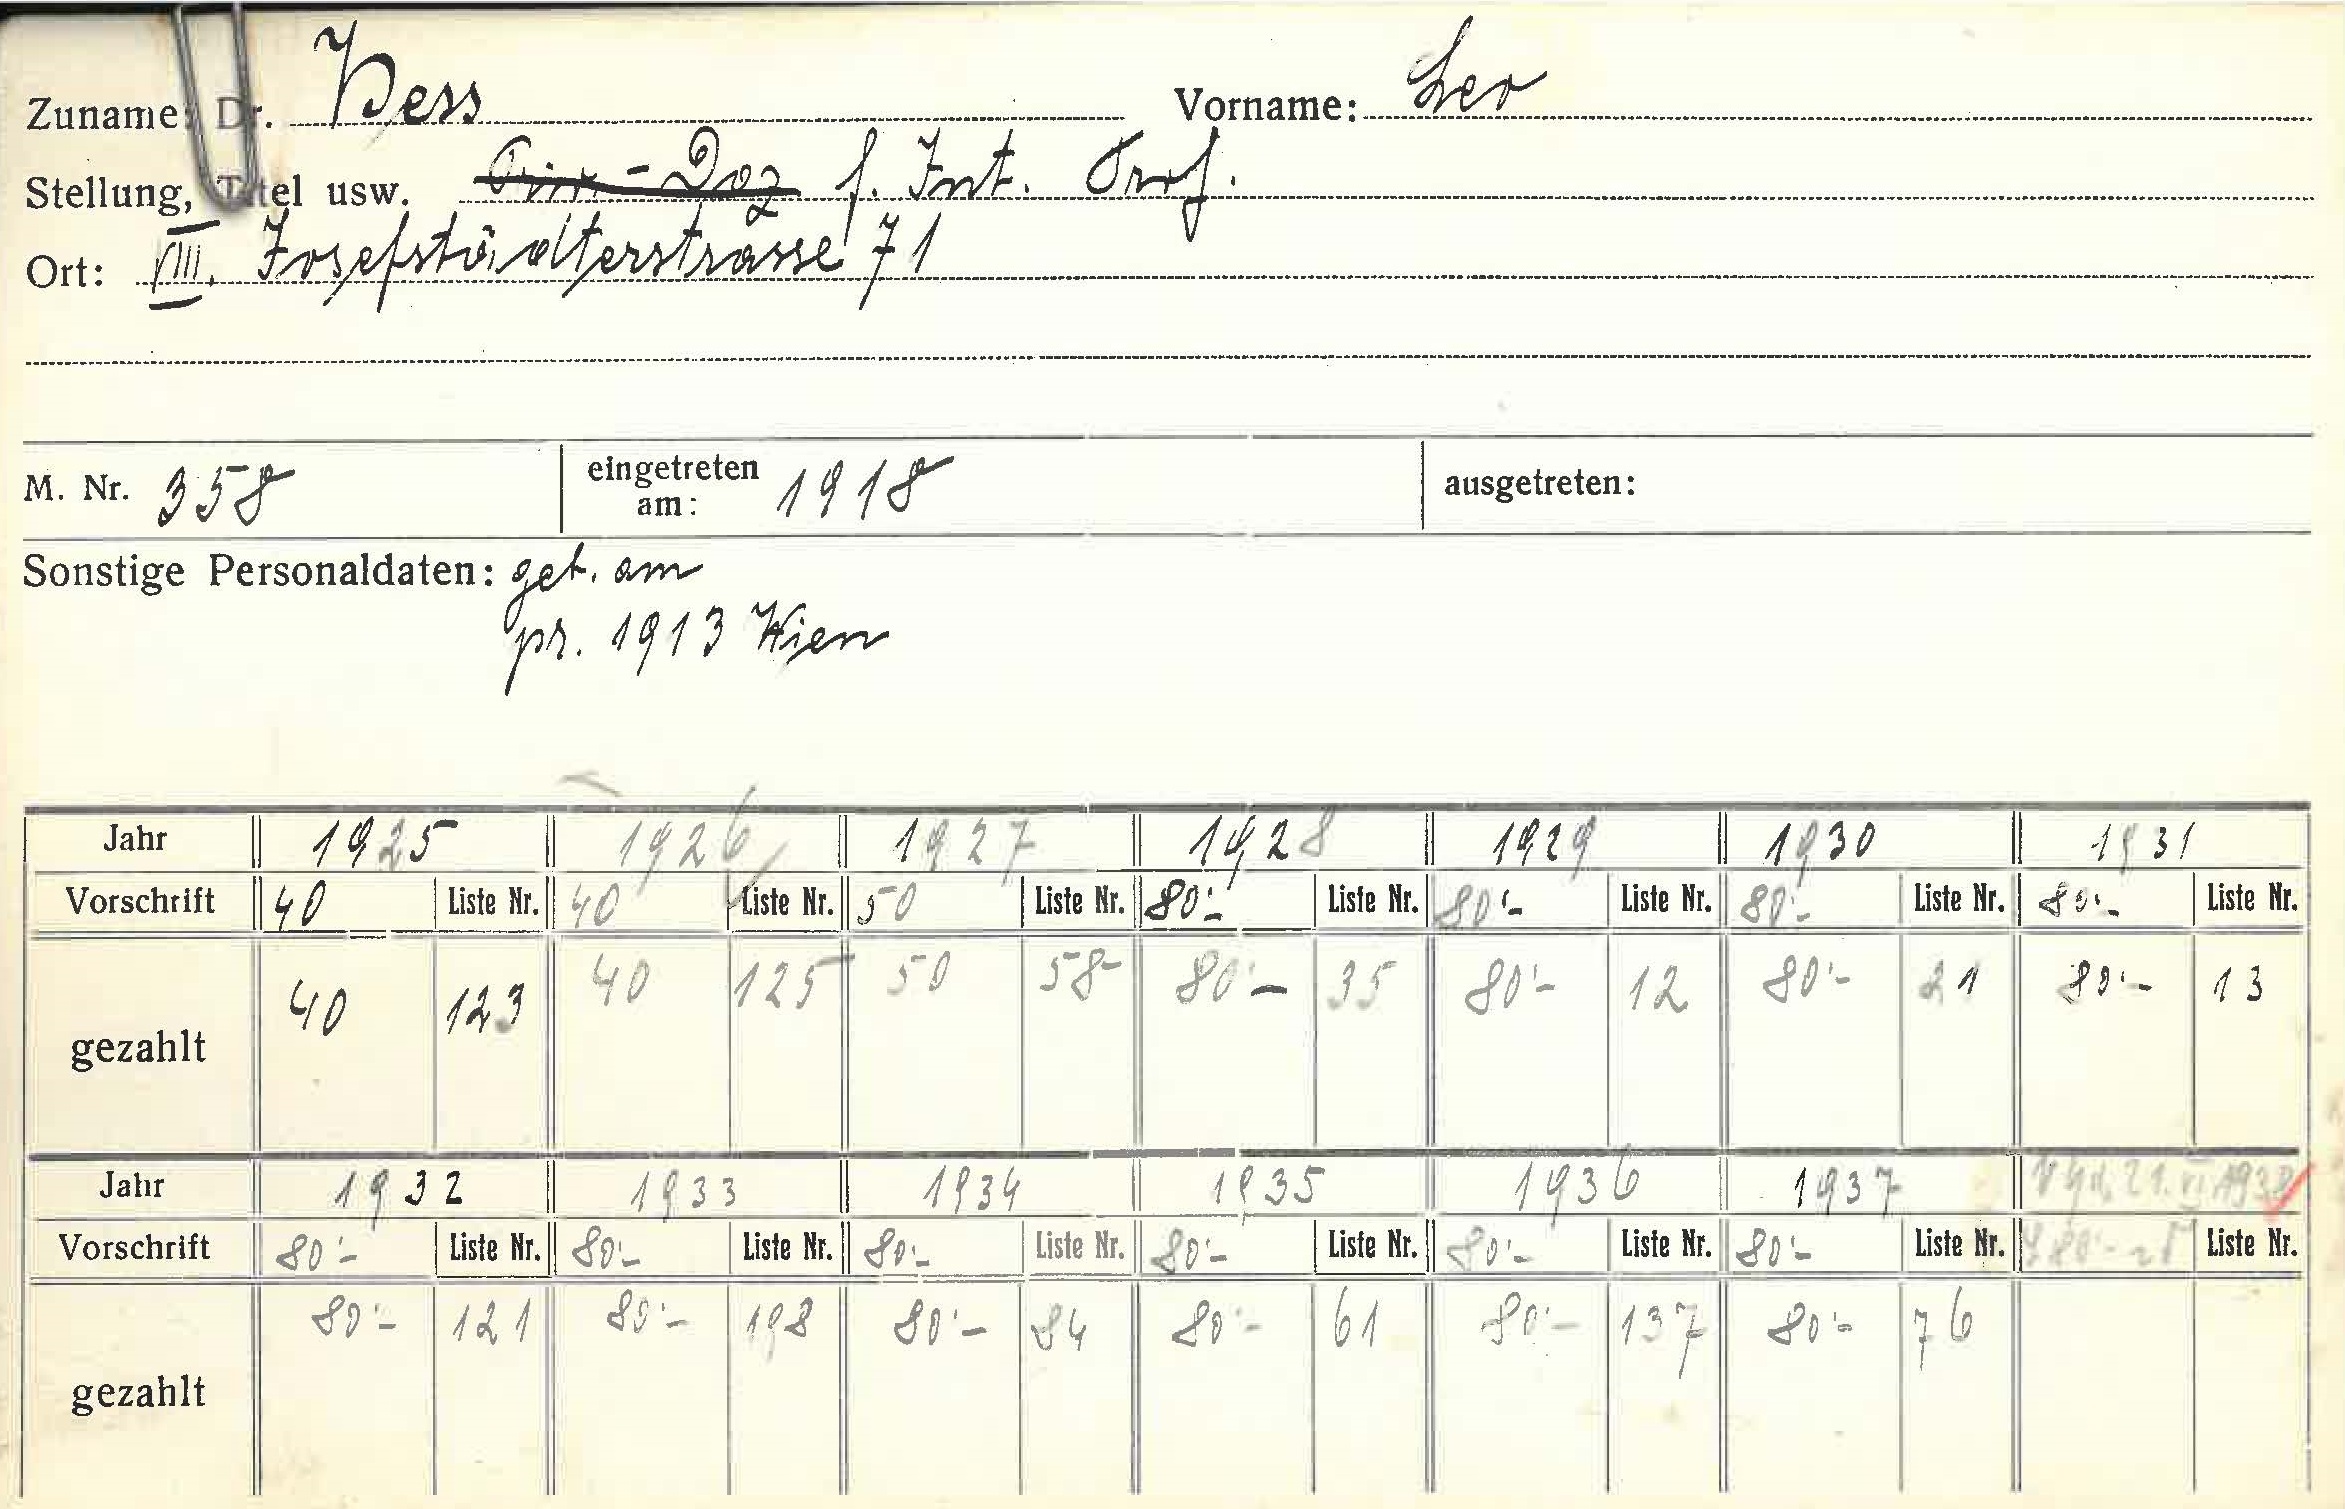 Zuname: Dr. Hess Vorname: Leo
Stellung, Titel usw. Priv-Doz f. Int. Prof.
Ort: VIII. Josefstädterstrasse 71
M. Nr. 358 eingetreten am: 1918 ausgetreten:
Sonstige Personaldaten: geb. am
pr. 1913 Wien
Jahr 1925 1926 1927 1928 1929 1930 1931
Vorschrift 40 Liste Nr. 40 Liste Nr. 50 Liste Nr. 80'- Liste Nr. 80'- Liste Nr. 80'- Liste Nr. 80'- Liste Nr.
gezahlt 40 123 40 125 50 58 80'- 35 80'- 12 80'- 21 80'- 13
Jahr 1932 1933 1934 1935 1936 1937 21. VI. 1938
Vorschrift 80'- Liste Nr. 80'- Liste Nr. 80'- Liste Nr. 80'- Liste Nr. 80'- Liste Nr. 80'- Liste Nr. Liste Nr.
gezahlt 80'- 121 80'- 198 80'- 84 80'- 61 80'- 137 80'- 76